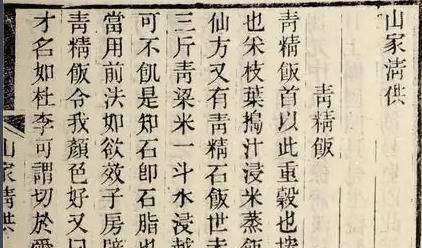 山家清供
青精飯
靑精飯首以此重穀也按
也采枝葉搗汁浸米蒸飯
仙方又有靑精石飯世未
三斤靑粱米一斗水浸越
可不飢是知石卽石脂也
當用前法如欲效子房辟
靑精飯令我顏色好又曰
才名如杜李可謂切於愛
山家清供